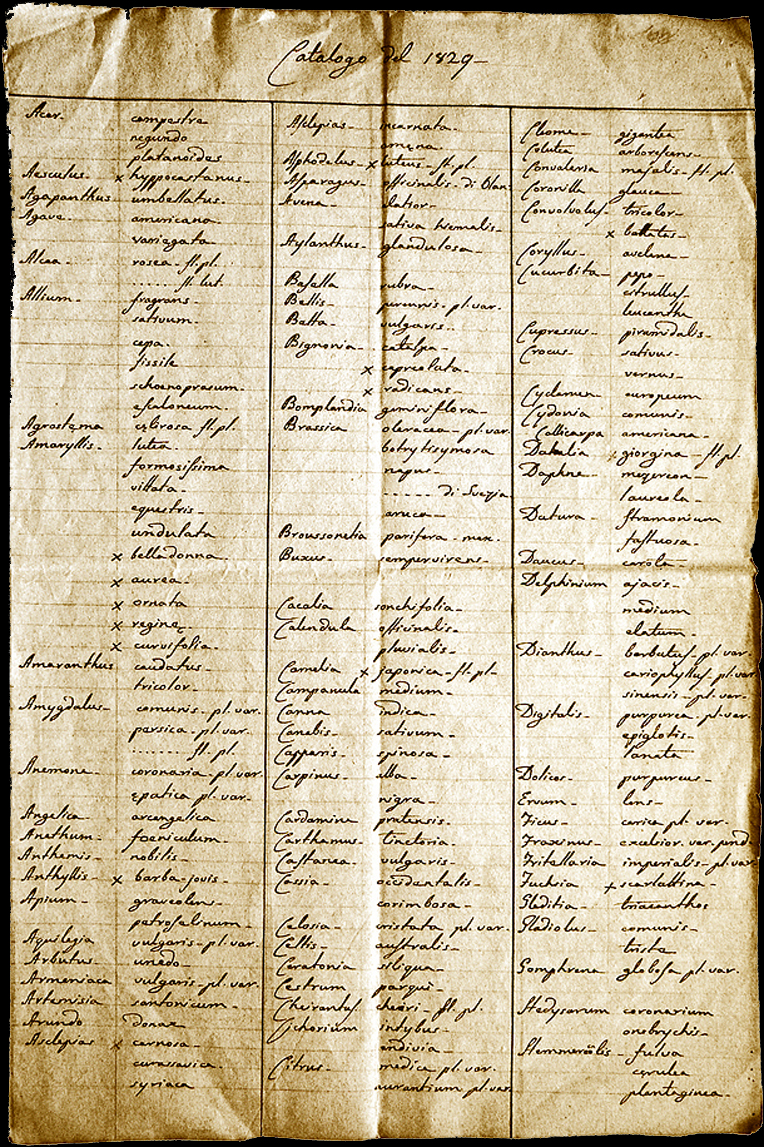 Catalogo del 1829
Acer campestre
negundo
platanoides
Aesculus × hyppocastanus
Agapanthus umbellatus
Agave americana
variegata
Alcea rosea fl. pl.
....... fl. lut.
Allium fragrans
sativum
cepa
fissile
schoenoprasum
escaloneum
Agrostema fl. pl.
Amaryllis lutea
formosissima
vittata
equestris
undulata
× belladonna
× aurea
× ornata
× reginę
× curvifolia
Amaranthus caudatus
tricolor
Amygdalus comunis pl. var.
persica pl. var.
........ fl. pl.
Anemone coronaria pl. var.
epatica pl. var.
Angelica arcangelica
Anethum foeniculum
Anthemis nobilis
Anthyllis × barba-jovis
Apium graveolens
petroselinum
Aquilegia vulgaris pl. var.
Arbutus unedo
Armeniaca vulgaris pl. var.
Artemisia santonicum
Arundo donax
Asclepias × carnosa
curassavica
syriaca
Asclepias incarnata
amęna
Asphodelus × luteus fl. pl.
Asparagus officinalis di Olan.
Avena elatior
sativa hiemalis
Aylanthus glandulosa
Basella rubra
Bellis perennis pl. var.
Betta vulgaris
Bignonia catalpa
× capreolata
× radicans
Bomplandia geminiflora
Brassica oleracea pl. var.
botrytisymosa
napus
----- di Svezia
eruca
Broussonetia parifera
Buxus sempervirens
Cacalia sonchifolia
Calendula officinalis
pluvialis
Camelia × japonica fl. pl.
Campanula medium
Canna indica
Canebis sativum
Capparis spinosa
Carpinus alba
nigra
Cardamine pratensis
Carthamus tinctoria
Castanea vulgaris
Cassia occidentalis
corimbosa
Celosia cristata pl. var.
Celtis australis
Ceratonia siliqua
Cestrum parqui
Cheirantus cheiri fl. pl.
Cichorium intybus
endivia
Citrus medica pl. var.
aurantium pl. var.
Cleome gigantea
Colutea arborescens
Convalaria majalis fl. pl.
Coronilla glauca
Convolvolus tricolor
× battatas
Coryllus avelana
Cucurbita pepo
citrullus
leucantha
Cupressus piramidalis
Crocus sativus
vernus
Cyclamen europeum
Cydonia comunis
Callicarpa americana
Dahalia giorgina fl. pl.
Daphne mezereon
laureola
Datura stramonium
fastuosa
Daucus carota
Delphinium ajacis
medium
elatum
Dianthus barbatus pl. var.
cariophyllus pl. var.
sinensis pl. var.
Digitalis purpurea pl. var.
epiglotis
lanata
Dolicos purpureus
Ervum lens
Ficus carica pl. var.
Fraxinus excelsior. var. pend.
Fritellaria imperialis pl. var.
Fuchsia × scarlattina
Gleditia triacanthos
Gladiolus comunis
triste
Gomphrena globosa pl. var.
Hedysarum coronarium
onobrychis
Hemmerocalis fulva
cęrulea
plantaginea